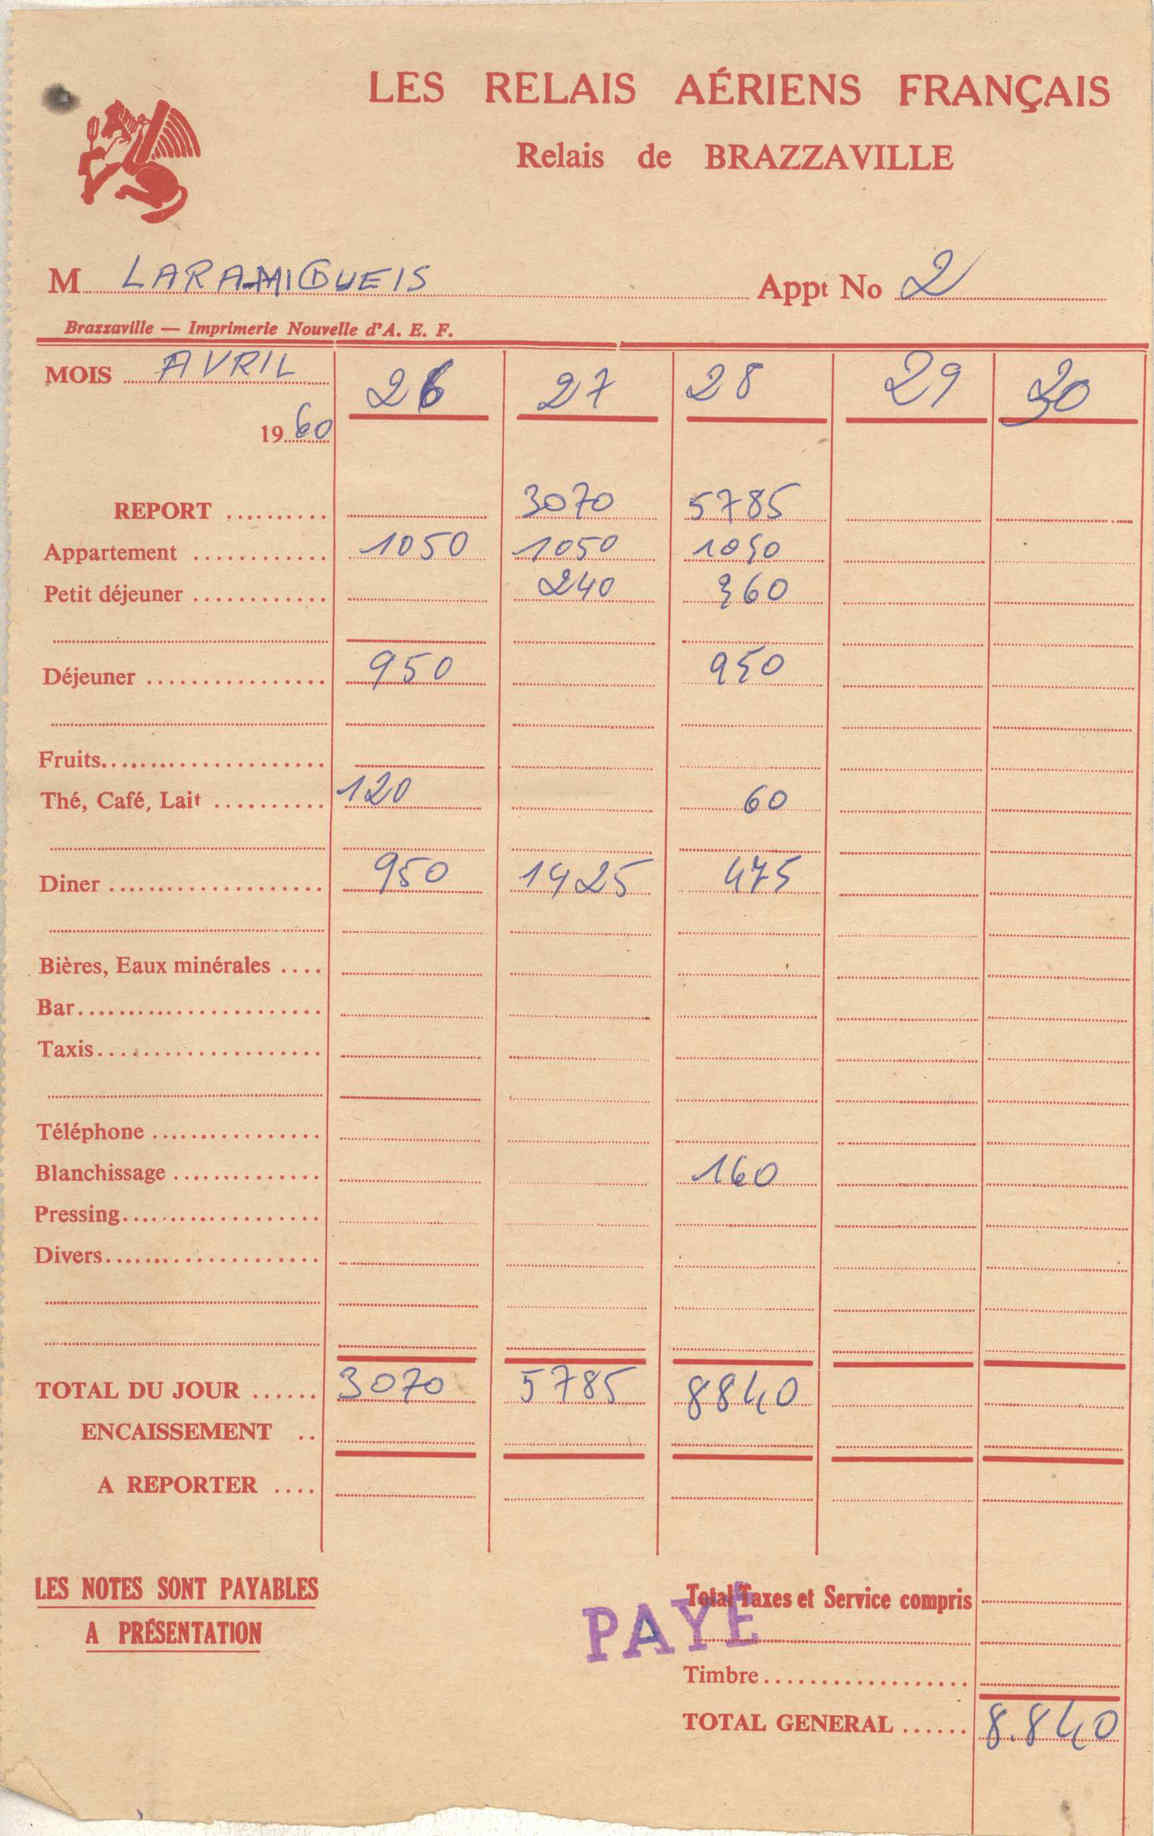 LES RELAIS AÉRIENS FRANÇAIS
Relais de BRAZZAVILLE
M LARAMIGUEIS Appt No 2
Brazzaville — Imprimerie Nouvelle d'A. E. F.
MOIS AVRIL 26 27 28 29 30
1960
REPORT .......... 3070 5785
Appartement ............ 1050 1050 1050
Petit déjeuner ............ 240 360
Déjeuner ................ 950 950
Fruits....................
Thé, Café, Lait .......... 120 60
Diner .................... 950 1425 475
Bières, Eaux minérales ....
Bar......................
Taxis....................
Téléphone ...............
Blanchissage ............. 160
Pressing..................
Divers...................
TOTAL DU JOUR ...... 3070 5785 8840
ENCAISSEMENT ..
A REPORTER ....
LES NOTES SONT PAYABLES
A PRÉSENTATION
Total Taxes et Service compris
PAYÉ
Timbre..................
TOTAL GENERAL ...... 8.840